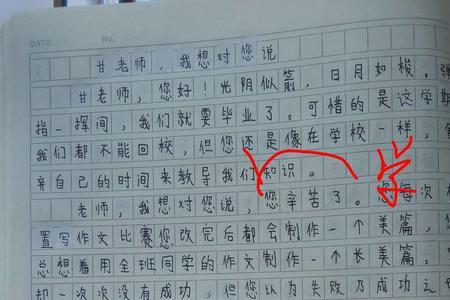 DATE:
No.
甘老师，我想对您说
甘老师，您好！光阴似箭，日月如梭。弹
指一挥间，我们就要毕业了。可惜的是这学期
我们都不能回校，但您还是像在学校一样，
弃自己的时间来教导我们知识。
学
老师，我想对您说，您辛苦了。您每次
置写作文比赛您改完后都会制作一个美篇，
总想着用全班同学的作文制作一个长美篇，
却一次次没有成功，但您认为失败乃成功之